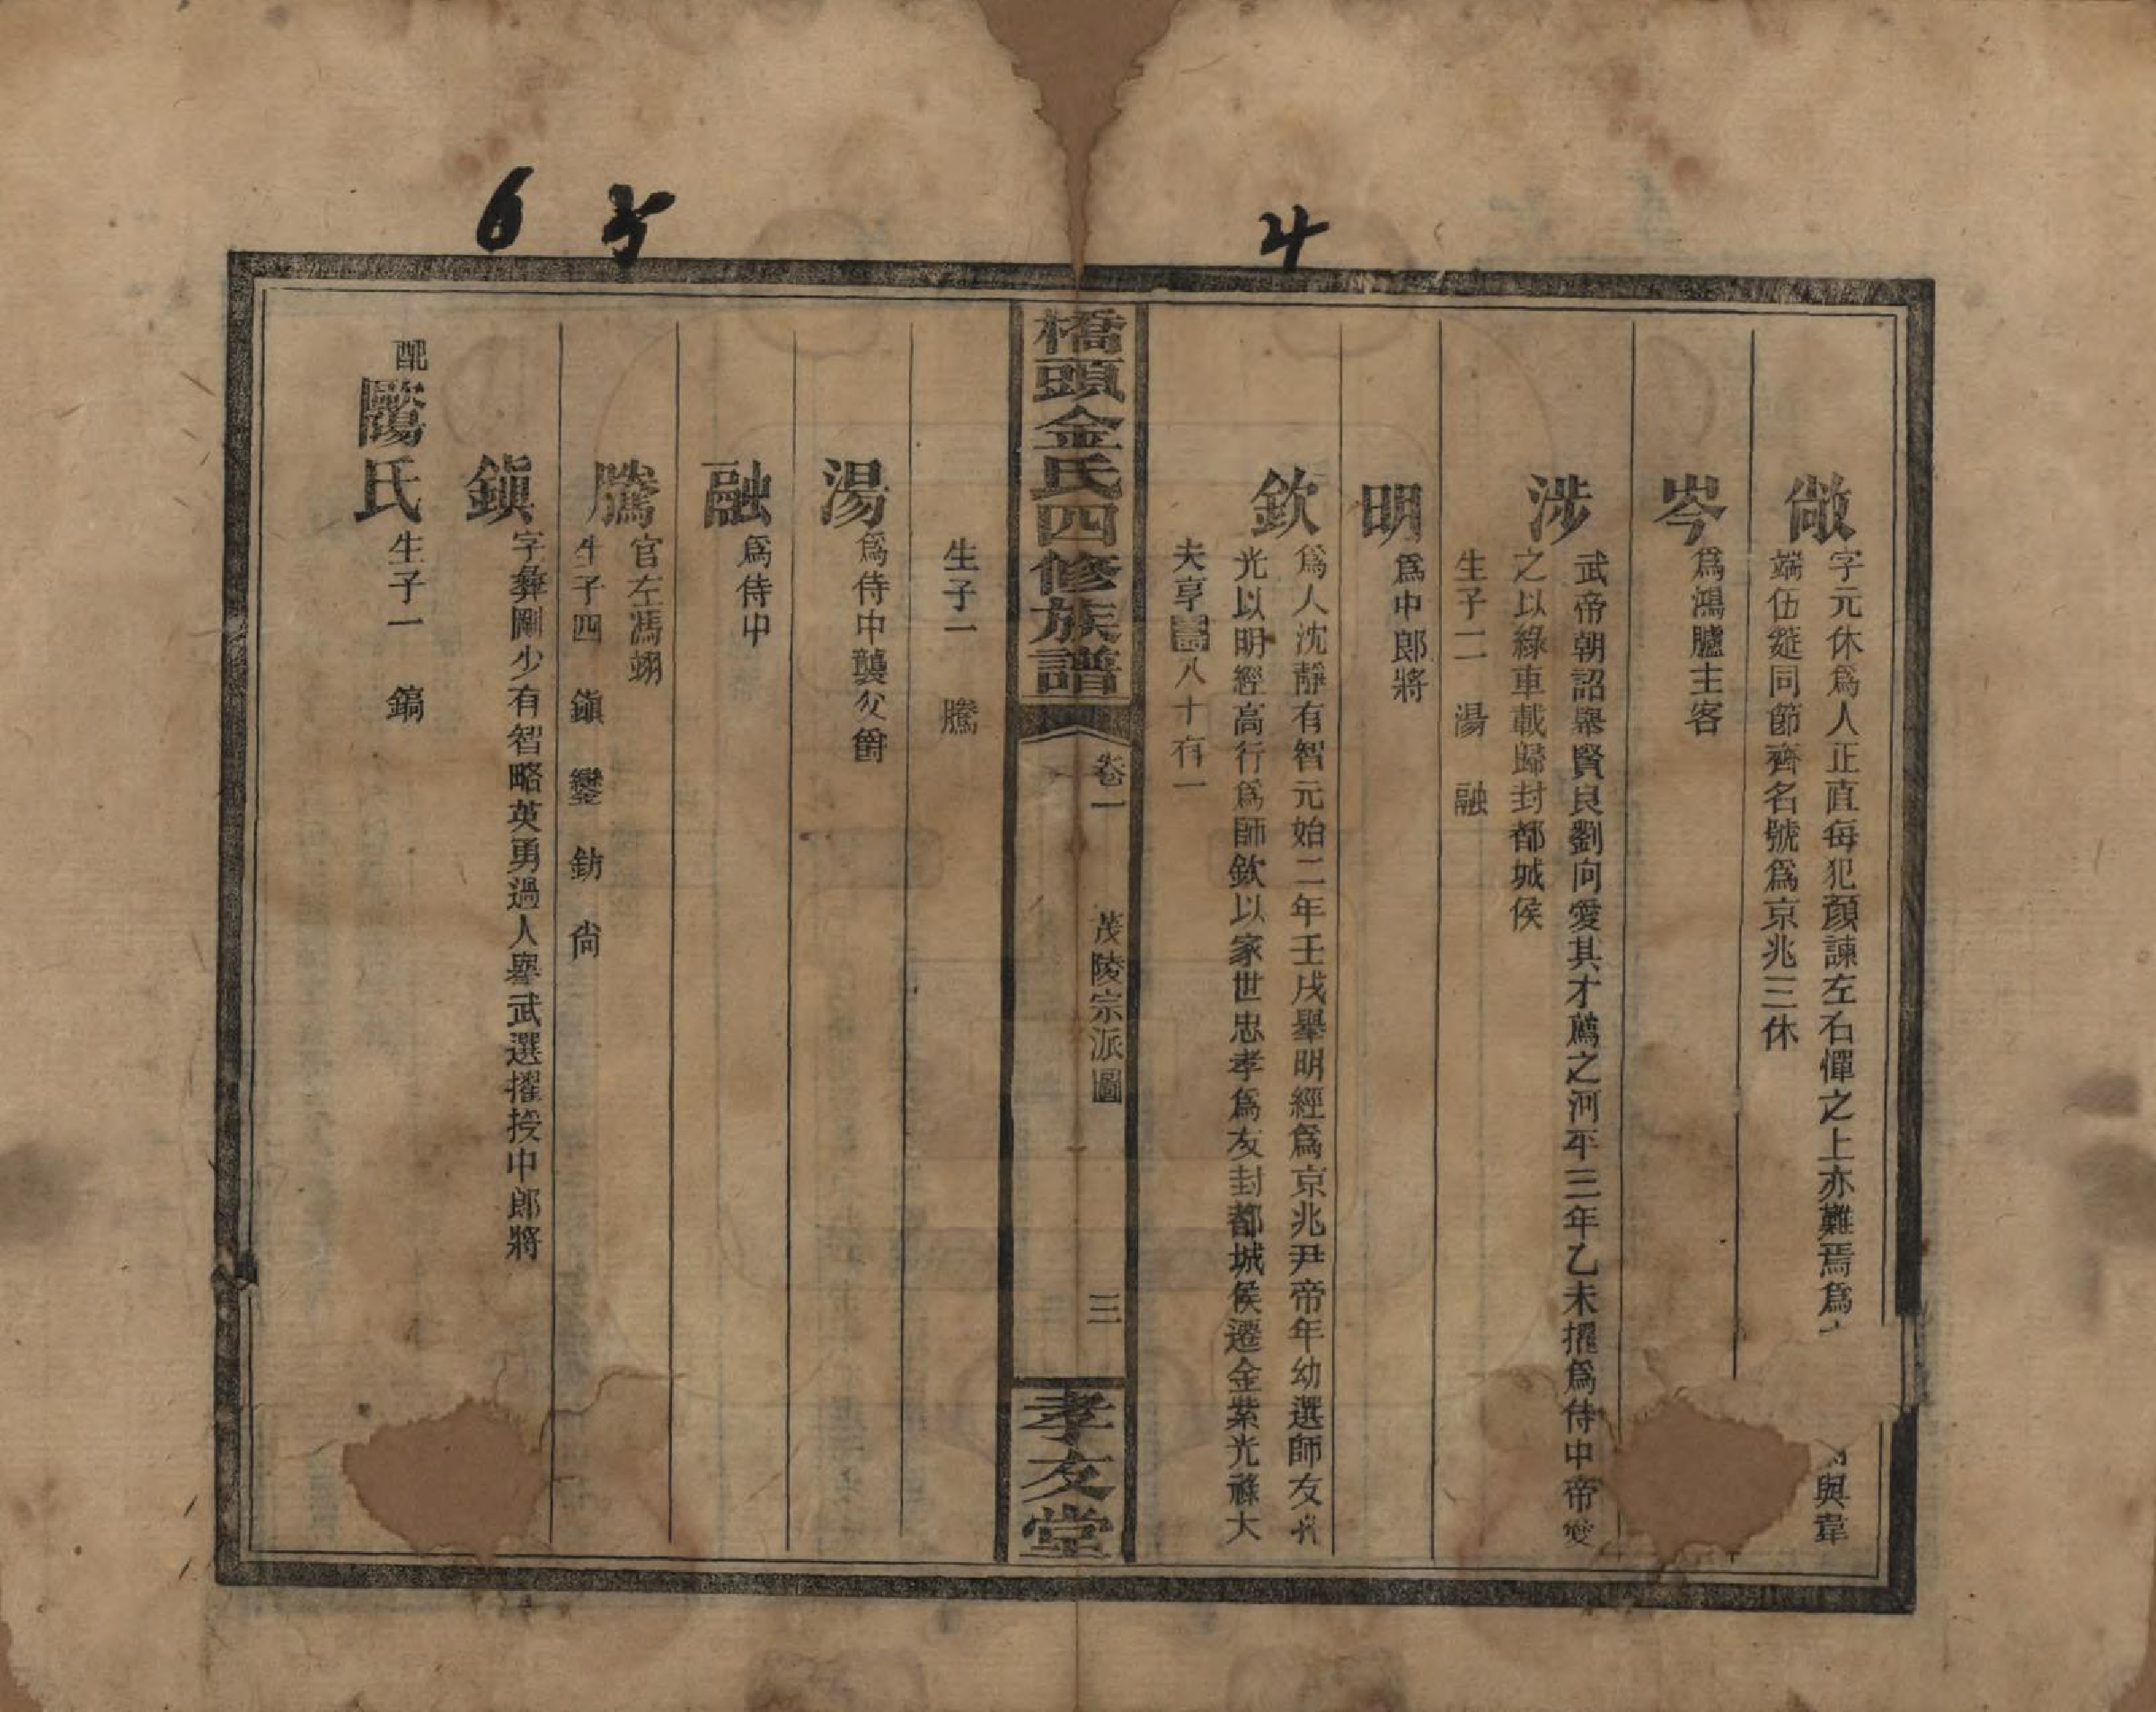 敞
字元休爲人正直每犯顏諫左右憚之上亦難焉爲
與韋
端伍蕤同節齊名號爲京兆三休
岑
爲鴻臚主客
涉
武帝朝詔舉賢良劉向愛其才薦之河平三年乙未擢爲侍中帝愛
之以綠車載歸封都城侯
生子二　湯　融
明
爲中郎將
欽
爲人沈靜有智元始二年壬戌舉明經爲京兆尹帝年幼選師友孔
光以明經高行爲師欽以家世忠孝爲友封都城侯遷金紫光祿大
夫享壽八十有一
橋頭金氏四修族譜
卷一
茂陵宗派圖
三
孝友堂
生子一　騰
湯
爲侍中襲父爵
融
爲侍中
騰
官左馮翊
生子四　鎮　鑾　鈁　尙
鎮
字彝剛少有智略英勇過人舉武選擢授中郎將
配歐陽氏
生子一　鎬
4
6